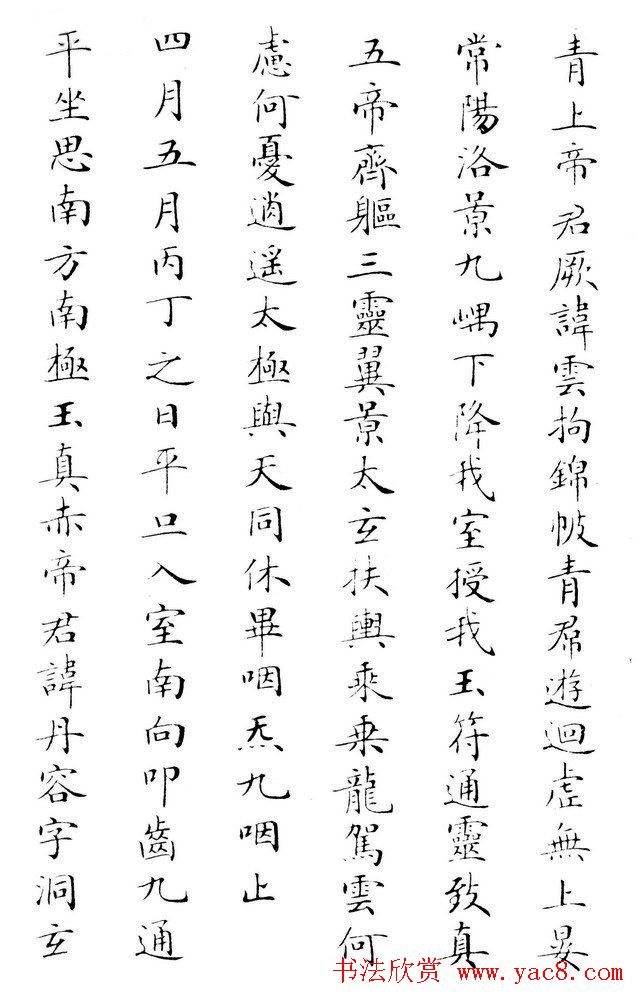 青上帝君厥諱雲拘錦帔青帬遊迴虛無上晏
常陽洛景九嵎下降我室授我玉符通靈致真
五帝齊軀三靈翼景太玄扶輿乘乗龍駕雲何
慮何憂逍遥太極與天同休畢咽炁九咽止
四月五月丙丁之日平旦入室南向叩齒九通
平坐思南方南極玉真赤帝君諱丹容字洞玄
书法欣赏 www.yac8.com